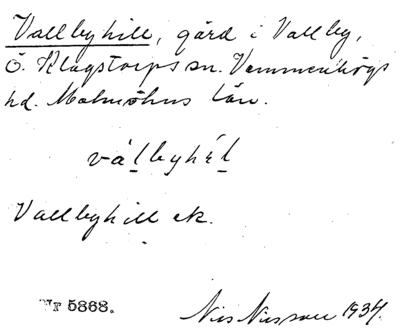 Vallbyhill, gård i Vallby,
Ö. Klagstorps sn. Vemmenhögs
hd. Malmöhus län.
válbyhɛ́l
Vallbyhill ek.
Nr 5868.
Nils Nilsson 1934.